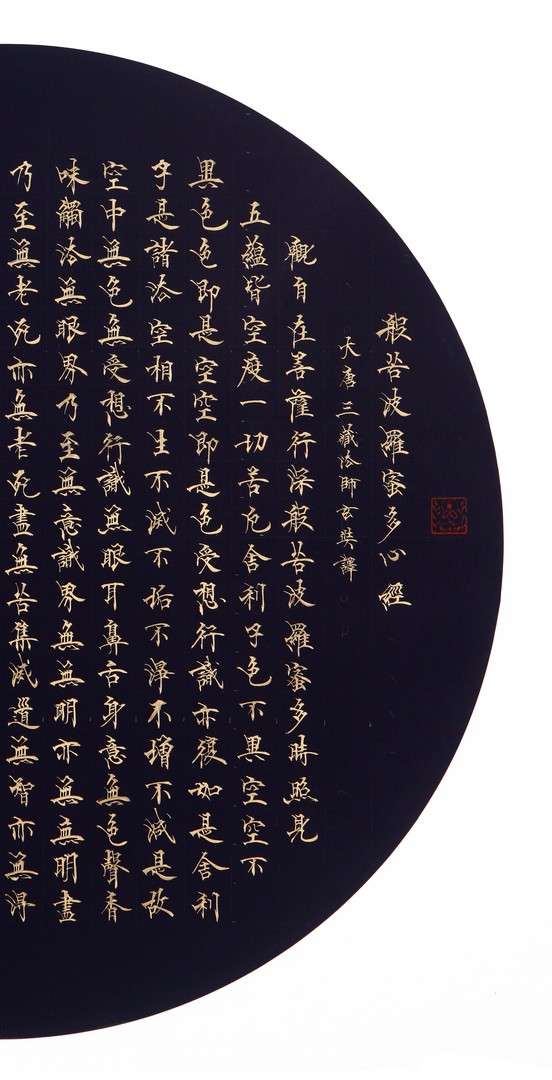 般若波羅蜜多心經
大唐三藏法師玄奘譯
觀自在菩薩行深般若波羅蜜多時照見
五蘊皆空度一切苦厄舍利子色不異空空不
異色色即是空空即是色受想行識亦復如是舍利
子是諸法空相不生不滅不垢不淨不增不減是故
空中無色無受想行識無眼耳鼻舌身意無色聲香
味觸法無眼界乃至無意識界無無明亦無無明盡
乃至無老死亦無老死盡無苦集滅道無智亦無得